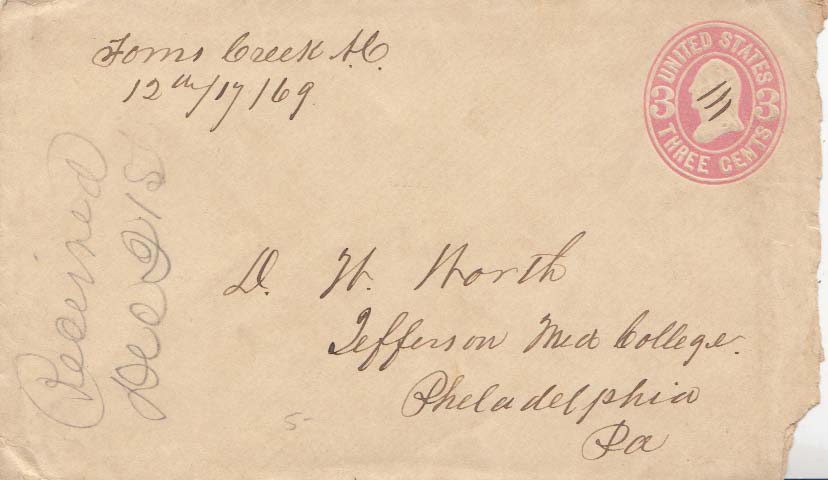 Toms Creek N.C.
12th/17/69
UNITED STATES
3 3
THREE CENTS
Received
Dec 21st
D. W. Worth
Jefferson Med College.
Philadelphia
Pa
5-